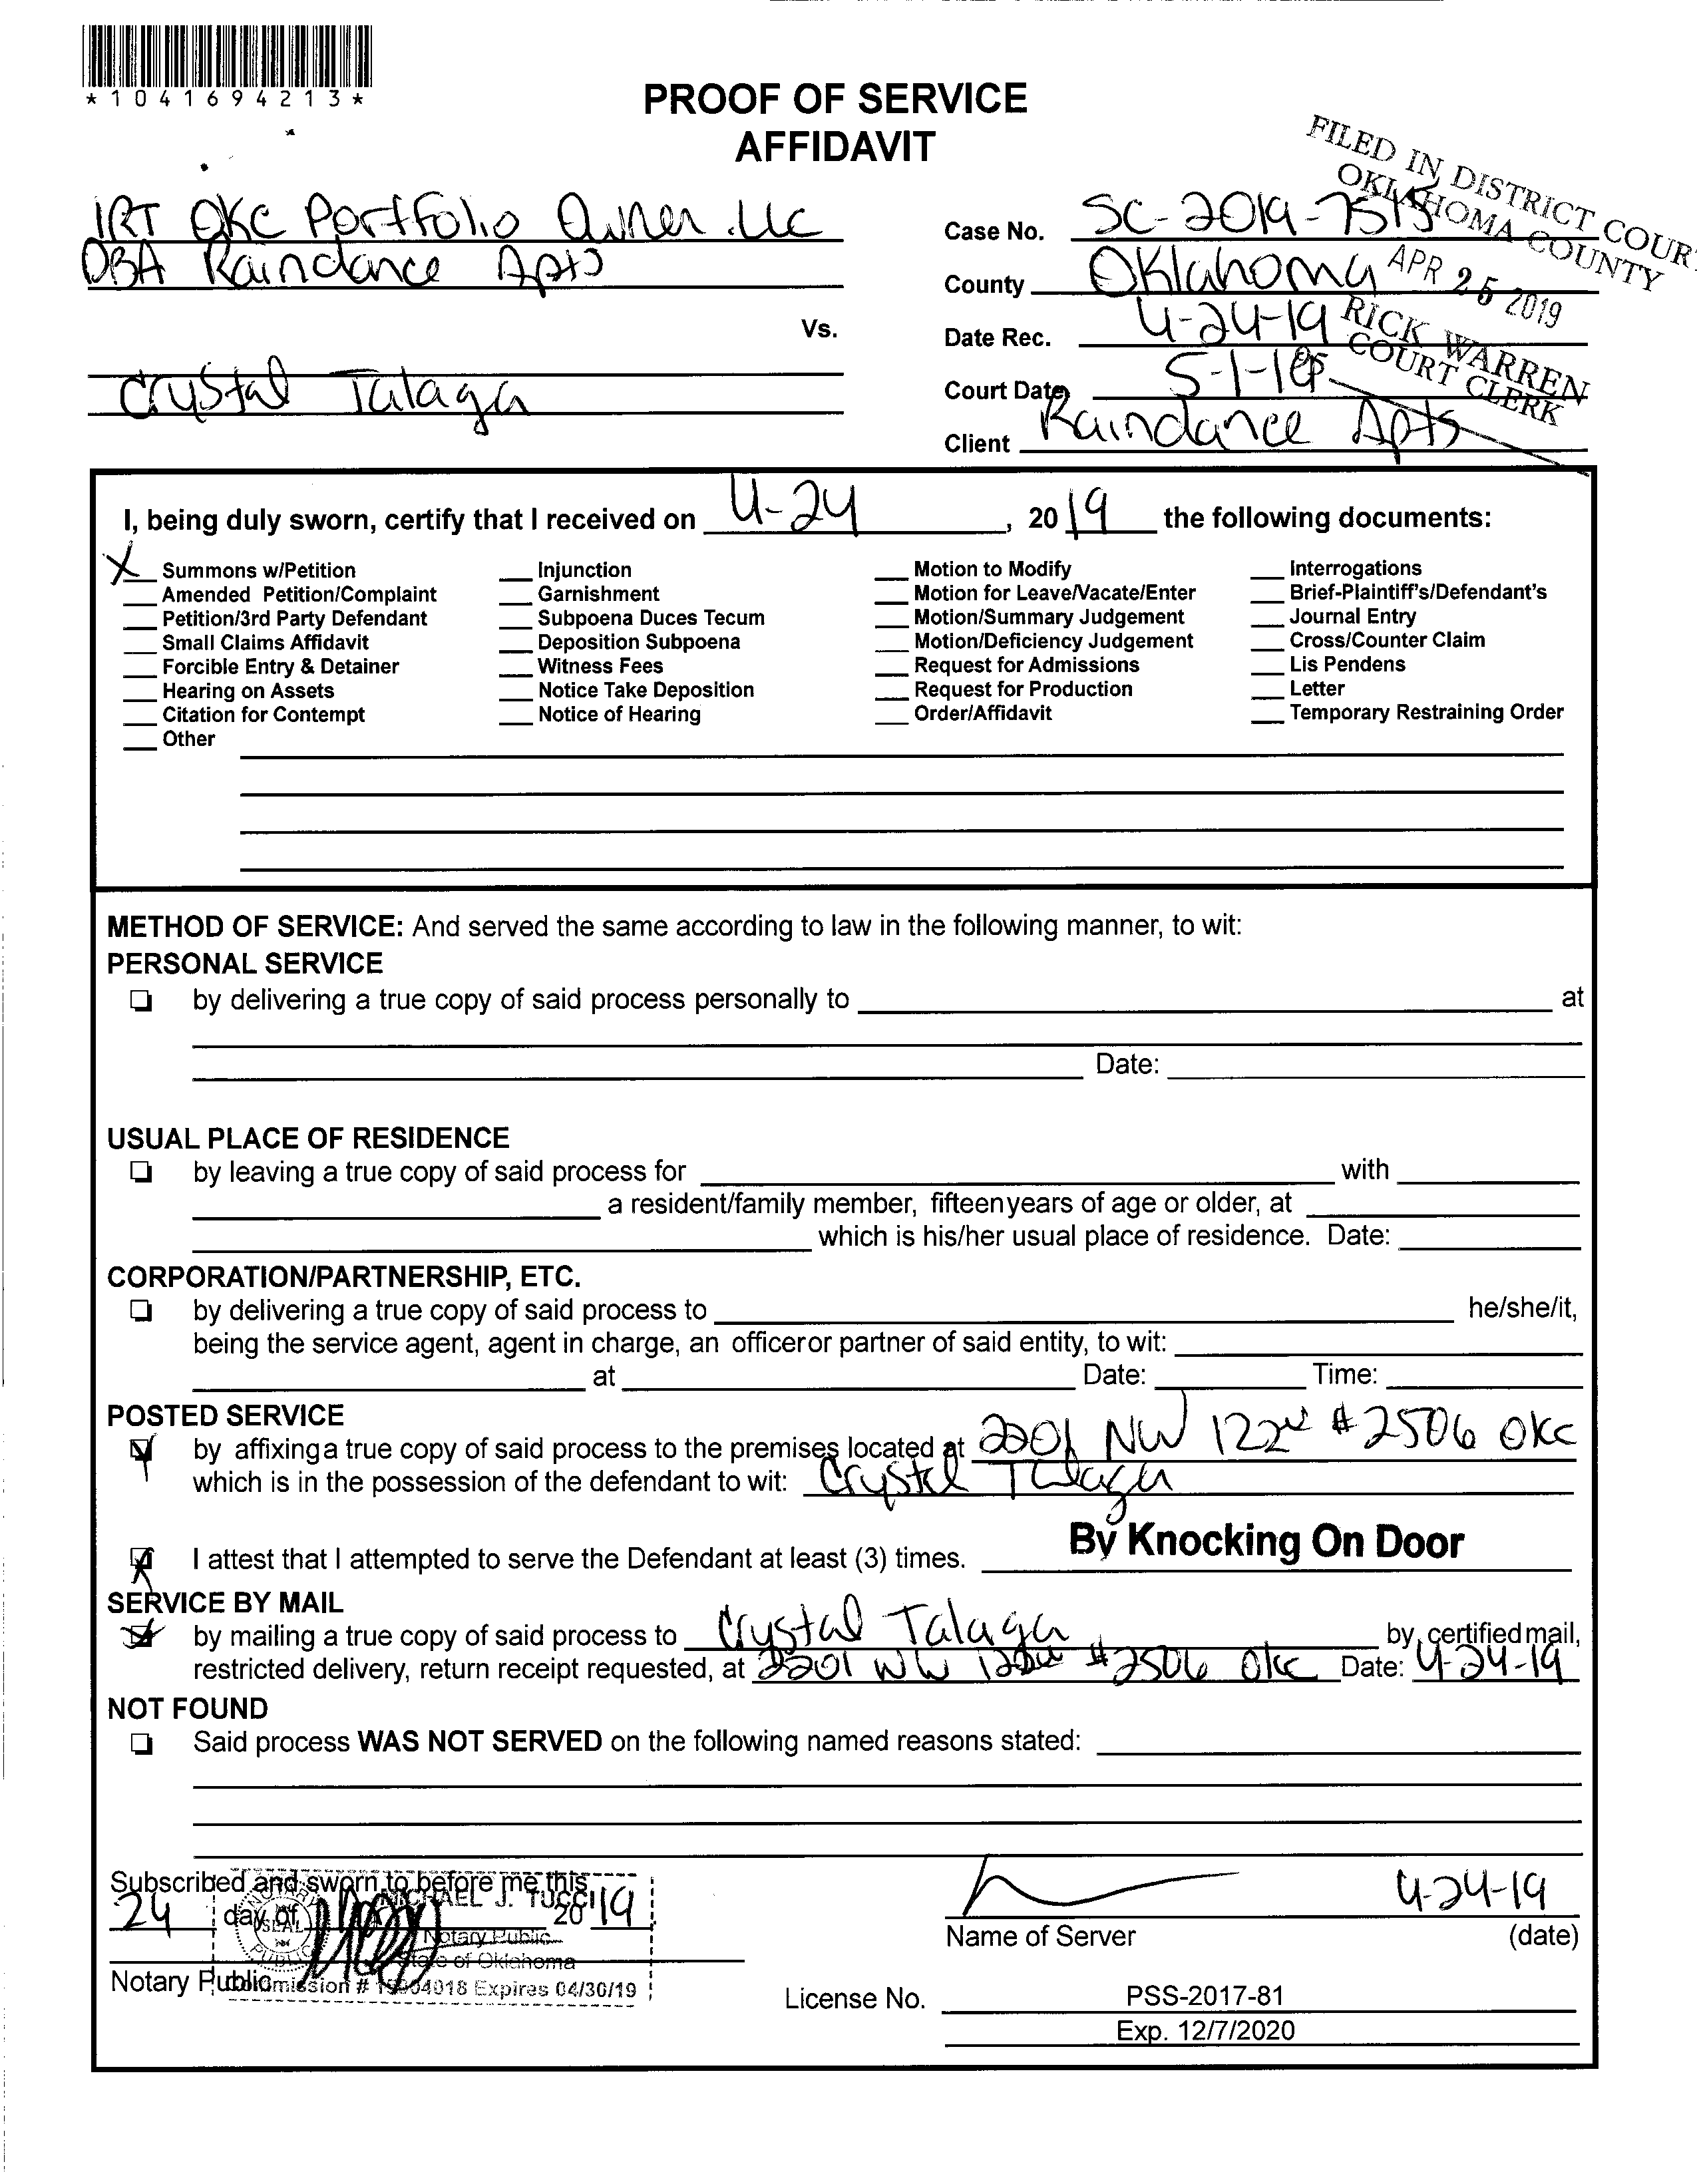 *1041694213*
PROOF OF SERVICE
AFFIDAVIT
FILED IN DISTRICT COURT
OKLAHOMA COUNTY
APR 25 2019
RICK WARREN
COURT CLERK
IRT OKC Portfolio Owner LLC
DBA Raindance Apts
Vs.
Crystal Talaga
Case No. SC-2019-7515
County Oklahoma
Date Rec. 4-24-19
Court Date 5-1-19
Client Raindance Apts
I, being duly sworn, certify that I received on 4-24, 2019 the following documents:
X Summons w/Petition
Amended Petition/Complaint
Petition/3rd Party Defendant
Small Claims Affidavit
Forcible Entry & Detainer
Hearing on Assets
Citation for Contempt
Other
Injunction
Garnishment
Subpoena Duces Tecum
Deposition Subpoena
Witness Fees
Notice Take Deposition
Notice of Hearing
Motion to Modify
Motion for Leave/Vacate/Enter
Motion/Summary Judgement
Motion/Deficiency Judgement
Request for Admissions
Request for Production
Order/Affidavit
Interrogations
Brief-Plaintiff's/Defendant's
Journal Entry
Cross/Counter Claim
Lis Pendens
Letter
Temporary Restraining Order
METHOD OF SERVICE: And served the same according to law in the following manner, to wit:
PERSONAL SERVICE
by delivering a true copy of said process personally to at
Date:
USUAL PLACE OF RESIDENCE
by leaving a true copy of said process for with
a resident/family member, fifteen years of age or older, at
which is his/her usual place of residence. Date:
CORPORATION/PARTNERSHIP, ETC.
by delivering a true copy of said process to he/she/it,
being the service agent, agent in charge, an officer or partner of said entity, to wit:
at Date: Time:
POSTED SERVICE
by affixing a true copy of said process to the premises located at 2201 NW 122nd #2506 OKC
which is in the possession of the defendant to wit: Crystal Talaga
By Knocking On Door
I attest that I attempted to serve the Defendant at least (3) times.
SERVICE BY MAIL
by mailing a true copy of said process to Crystal Talaga by certified mail,
restricted delivery, return receipt requested, at 2201 NW 122nd #2506 OKC Date: 4-24-19
NOT FOUND
Said process WAS NOT SERVED on the following named reasons stated:
Subscribed and sworn to before me this
24 day of 2019
MICHAEL J. TUCCI
SEAL
Notary Public
State of Oklahoma
Commission # 15004018 Expires 04/30/19
Notary Public
4-24-19
Name of Server (date)
License No. PSS-2017-81
Exp. 12/7/2020